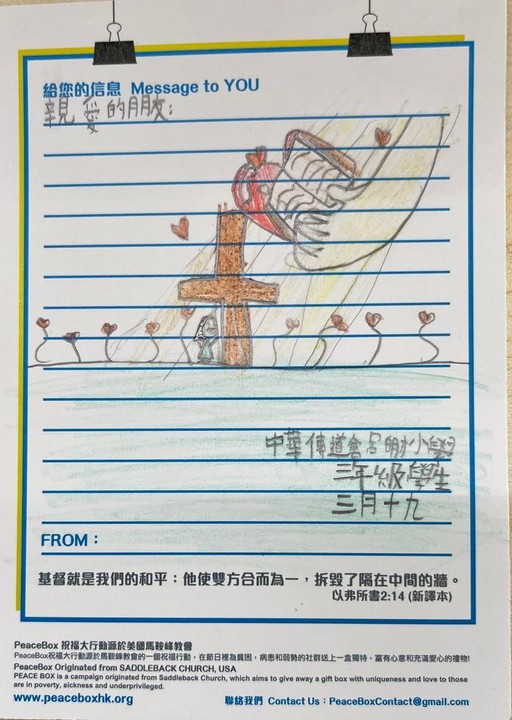 給您的信息 Message to YOU
親愛的朋友:
中華傳道會呂明才小學
三年級學生
三月十九
FROM：
基督就是我們的和平：他使雙方合而為一，拆毀了隔在中間的牆。
以弗所書2:14 (新譯本)
PeaceBox 祝福大行動源於美國馬鞍峰教會
PeaceBox祝福大行動源於馬鞍峰教會的一個祝福行動，在節日裡為貧困，病患和弱勢的社群送上一盒獨特，富有心意和充滿愛心的禮物!
PeaceBox Originated from SADDLEBACK CHURCH, USA
PEACE BOX is a campaign originated from Saddleback Church, which aims to give away a gift box with uniqueness and love to those
are in poverty, sickness and underprivileged.
www.peaceboxhk.org
聯絡我們 Contact Us：PeaceBoxContact@gmail.com